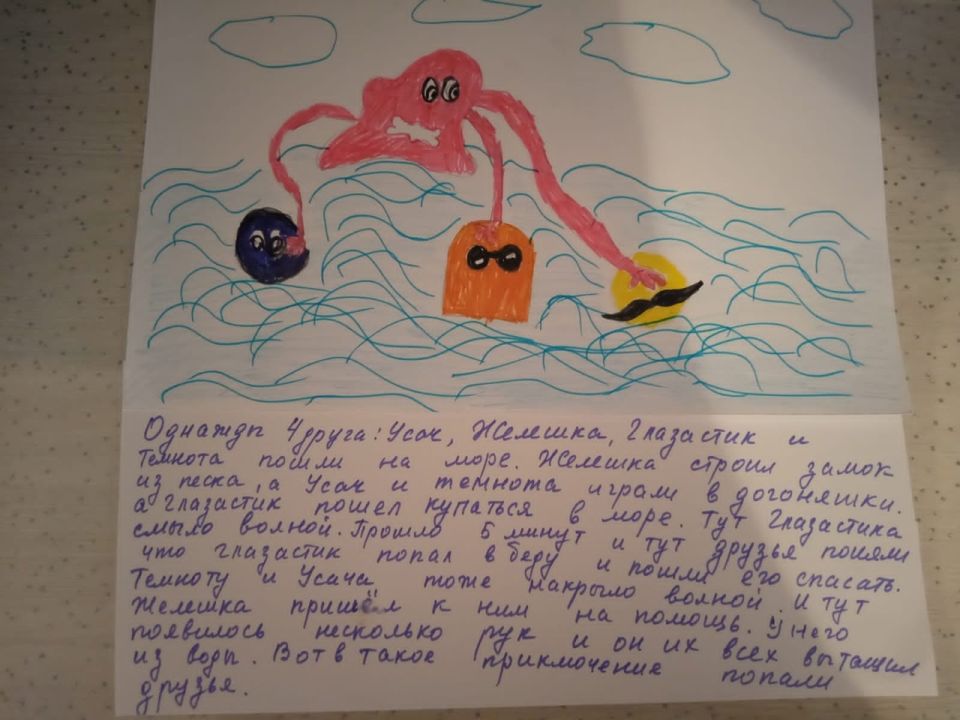 Однажды 4 друга: Усач, Желешка, Глазастик и
темнота пошли на море. Желешка строил замок
из песка, а Усач и темнота играли в догоняшки.
а Глазастик пошел купаться в море. Тут Глазастика
смыло волной. Прошло 5 минут и тут друзья поняли
что глазастик попал в беду и пошли его спасать.
Темноту и Усача тоже накрыло волной. И тут
Желешка пришёл к ним на помощь. У него
появилось несколько рук и он их всех вытащил
из воды. Вот в такое приключение попали
друзья.